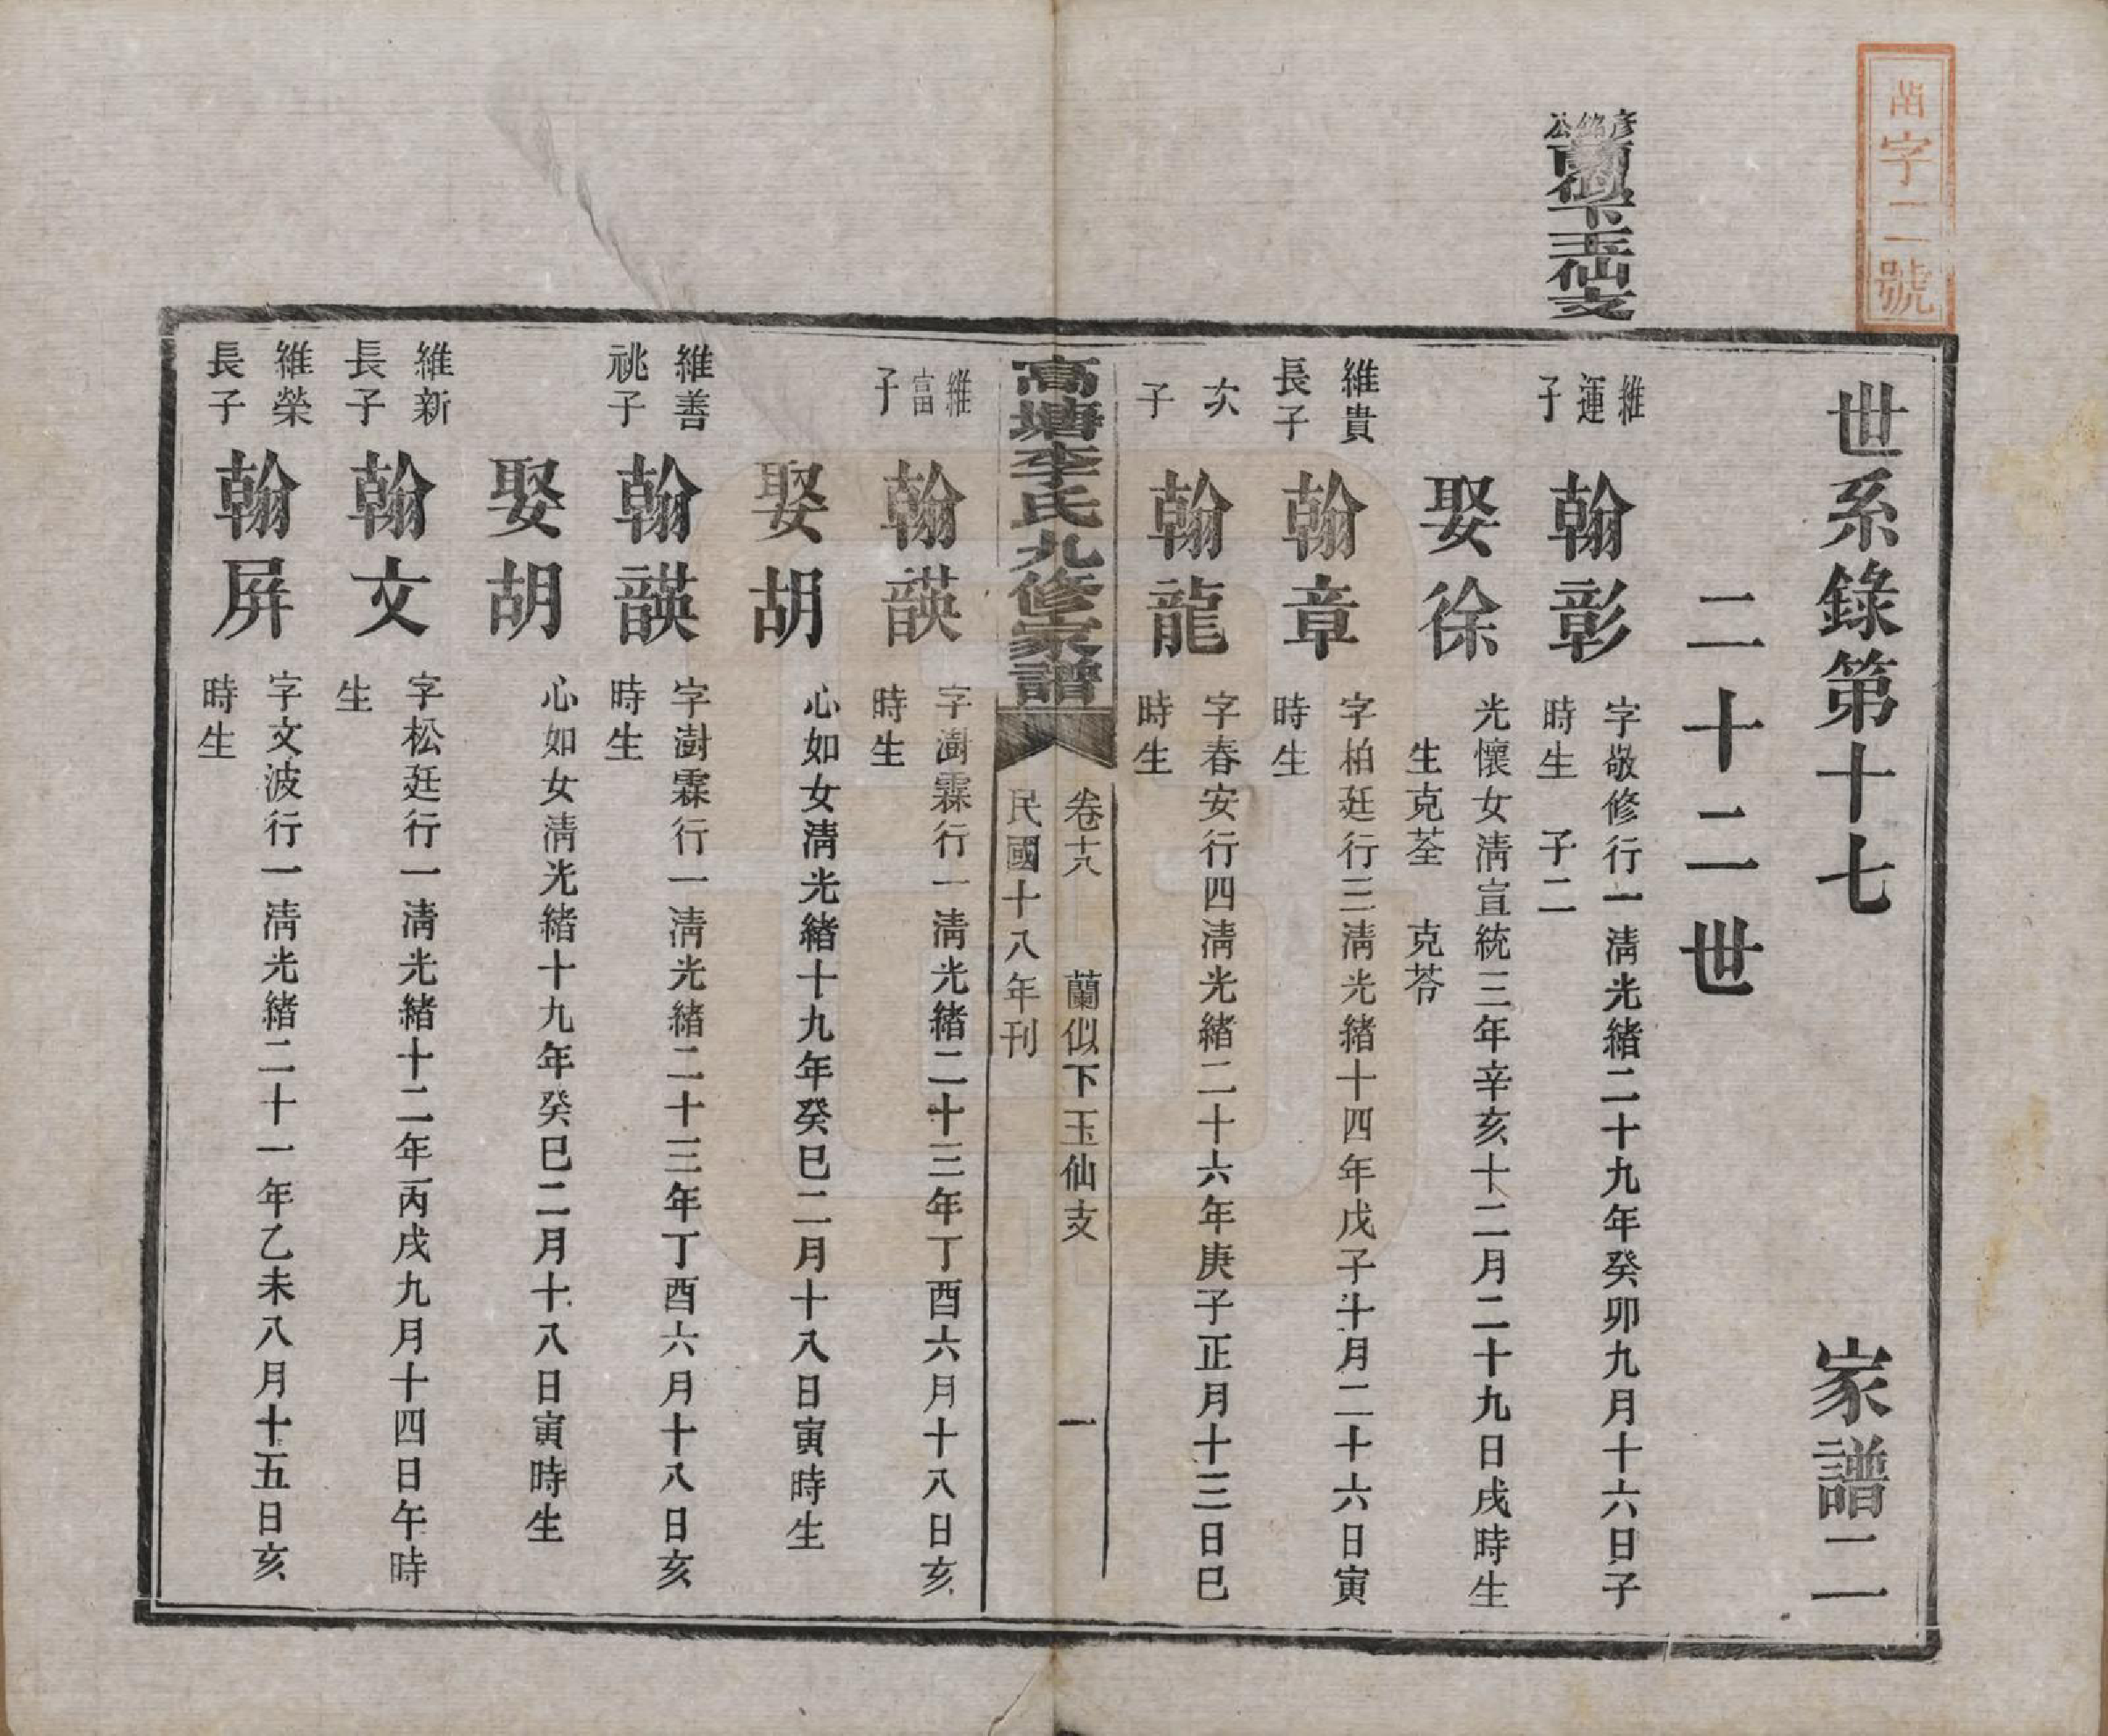 字二號
彥銘公蘭似下玉仙支
世系錄第十七　家譜二
二十二世
維運子
翰彰
字敬修行一清光緒二十九年癸卯九月十六日子
時生　子二
娶徐
光懷女清宣統三年辛亥十二月二十九日戌時生
生克荃　克苓
維貴
長子
翰章
字柏廷行三清光緒十四年戊子十月二十六日寅
時生
次
子
翰龍
字春安行四清光緒二十六年庚子正月十三日巳
時生
高塘李氏九修家譜
卷十八　蘭似下玉仙支　一
民國十八年刊
維富子
翰韺
字澍霖行一清光緒二十三年丁酉六月十八日亥
時生
娶胡
心如女清光緒十九年癸巳二月十八日寅時生
維善
祧子
翰韺
字澍霖行一清光緒二十三年丁酉六月十八日亥
時生
娶胡
心如女清光緒十九年癸巳二月十八日寅時生
維新
長子
翰文
字松廷行一清光緒十二年丙戌九月十四日午時
生
維榮
長子
翰屏
字文波行一清光緒二十一年乙未八月十五日亥
時生